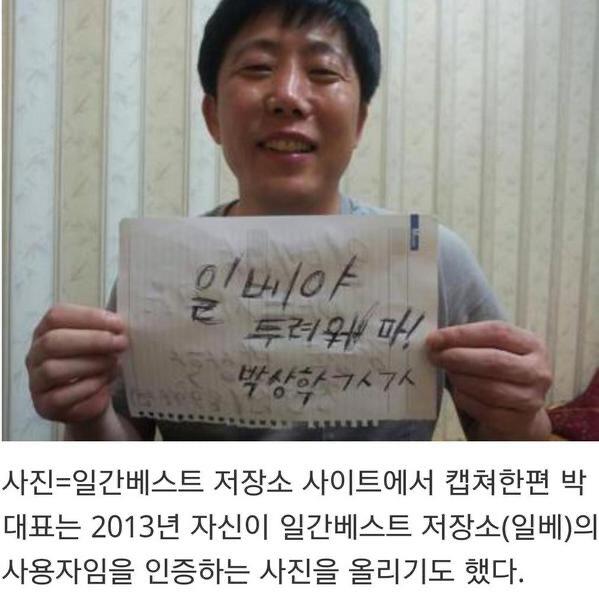 일베야
두려워 마!
박상학 ㄱㅅㄱㅅ
사진=일간베스트 저장소 사이트에서 캡쳐한편 박
대표는 2013년 자신이 일간베스트 저장소(일베)의
사용자임을 인증하는 사진을 올리기도 했다.